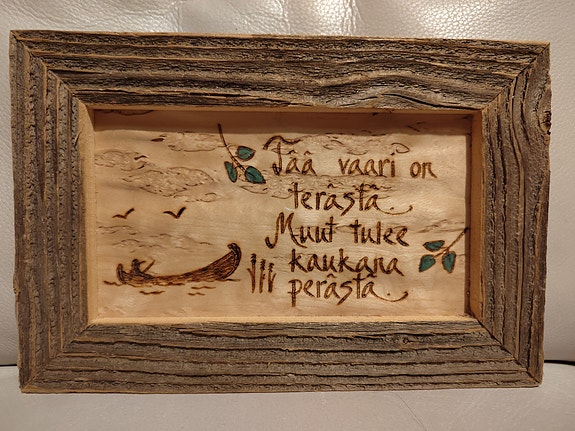 Tää vaari on
terästä.
Muut tulee
kaukana
perästä.